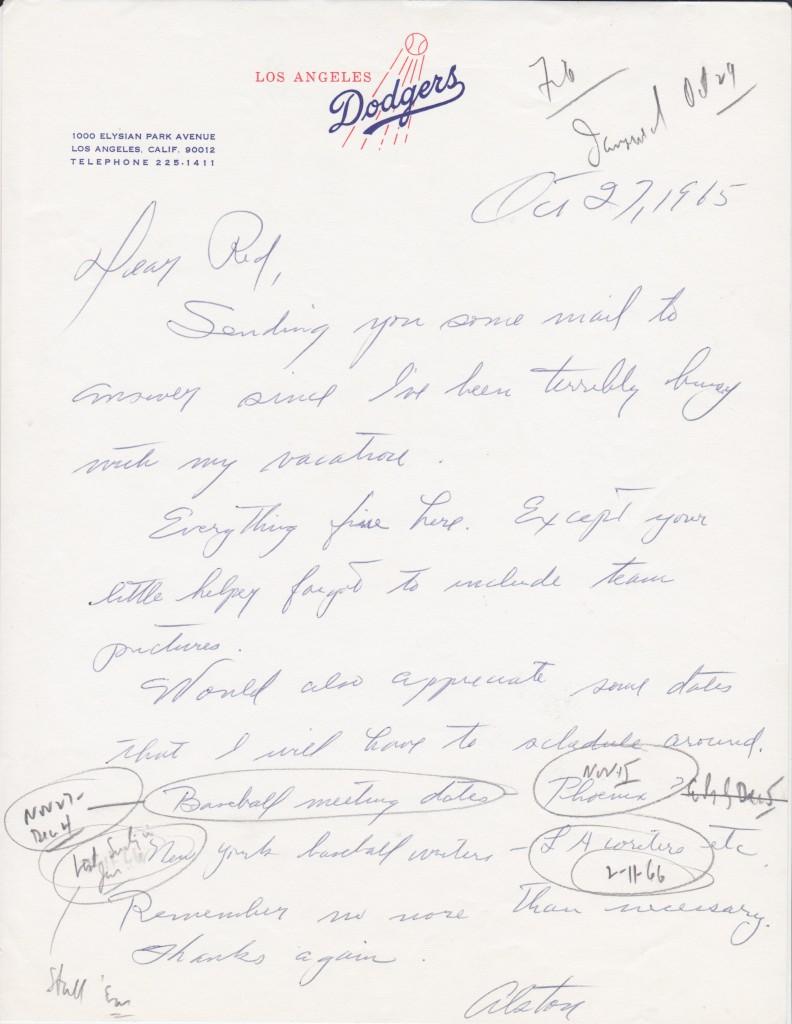 LOS ANGELES
Dodgers
1000 ELYSIAN PARK AVENUE
LOS ANGELES, CALIF. 90012
TELEPHONE 225-1411
Oct 29
Oct 27, 1965
Dear Red,
Sending you some mail to
answer since I've been terribly busy
with my vacation.
Everything fine here. Except your
little helper forgot to include team
pictures.
Would also appreciate some dates
that I will have to schedule around.
NOV 27-
Dec 4
Baseball meeting dates - Phoenix ?
NOV 15
Dec 5
New York baseball writers - L A writers etc.
Last Sunday in
Jan
2-11-66
Remember no more than necessary.
Thanks again.
Stall 'Em
Alston